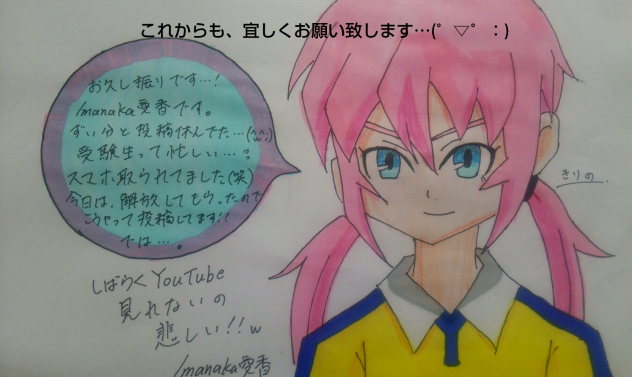 これからも、宜しくお願い致します…(゜▽゜:)
お久し振りです…!
Imanaka愛香です。
ずい分と投稿休んでた…(^_^;)
受験生って忙しい…?
スマホ取られてました(笑)
今日は、解放してもらったので
こうやって投稿してます!!
では…。
きりの。
しばらくYouTube
見れないの
悲しい!!w
Imanaka愛香